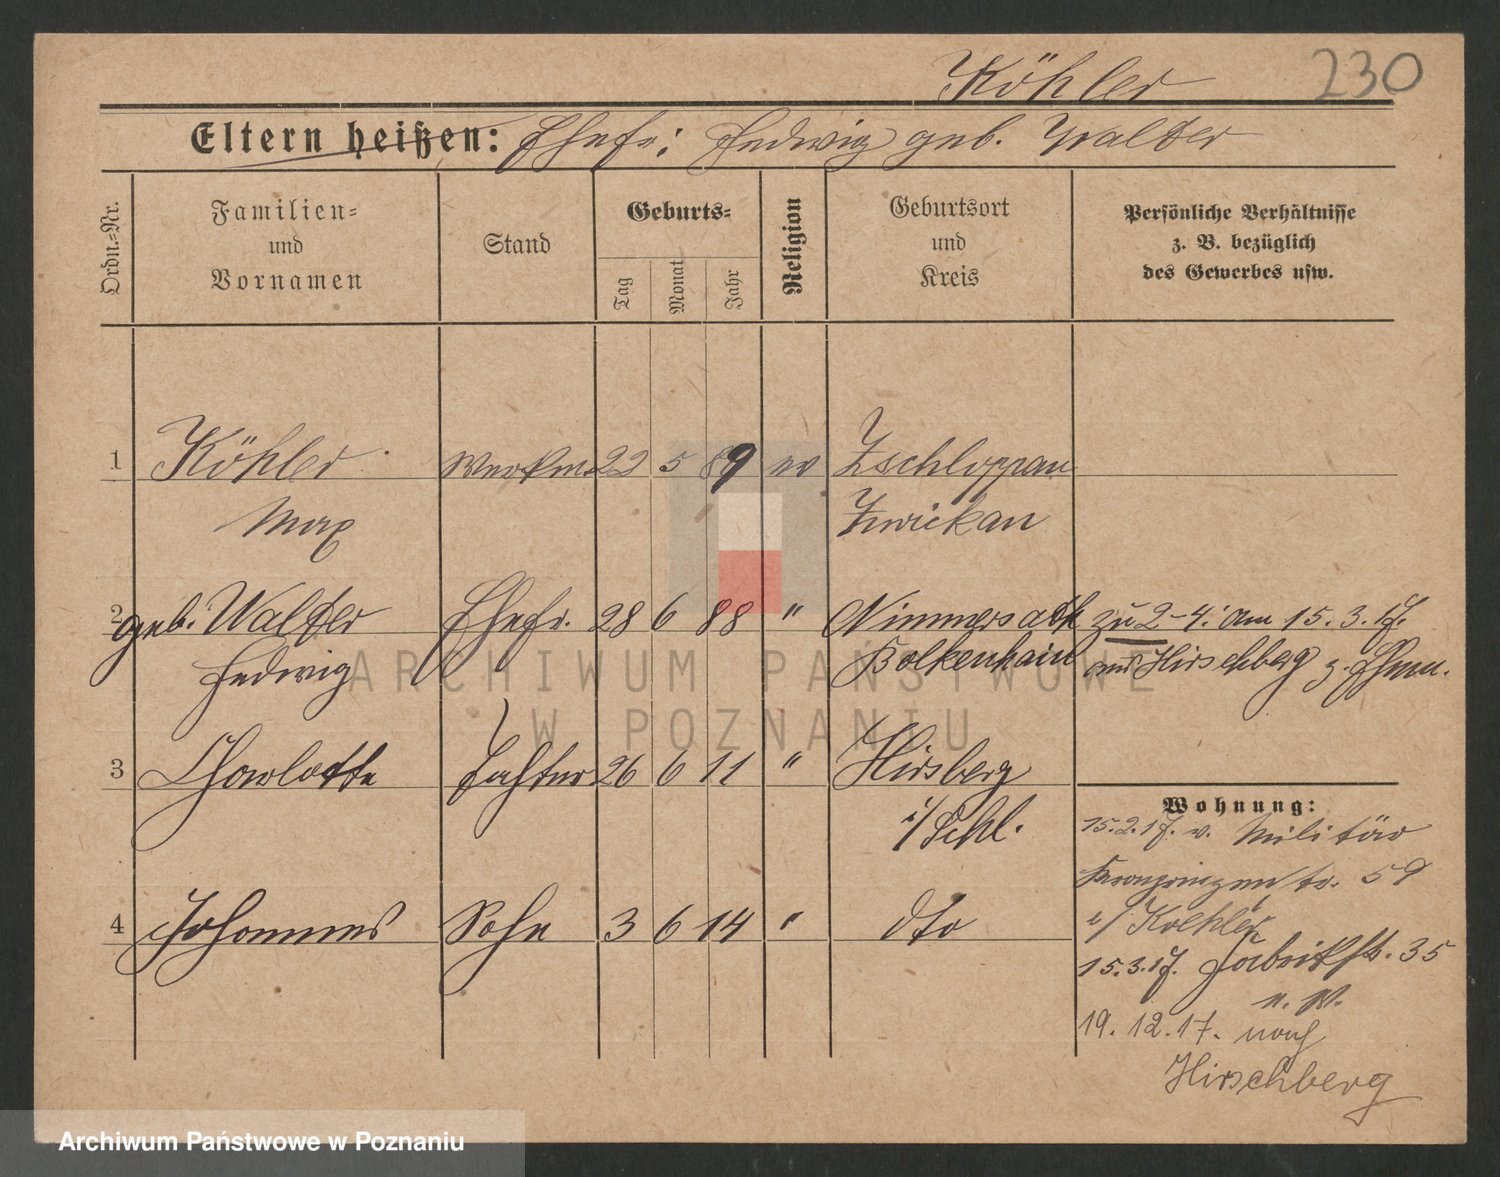 Köhler 230
Eltern heißen: Ehefr: Hedwig geb. Walter
Ordn.-Nr.
Familien-
und
Vornamen
Stand
Geburts-
Tag
Monat
Jahr
Religion
Geburtsort
und
Kreis
Persönliche Verhältnisse
z. B. bezüglich
des Gewerbes usw.
1 Köhler Werkm. 22 5 89 ev Zschloppau
Max Zwickau
2 geb. Walter Ehefr. 28 6 88 " Nimmersath zu 2-4: am 15.3.17.
Hedwig Bolkenhain aus Hirschberg z. Ehem.
3 Charlotte Tochter 26 6 11 " Hirsberg
i/Schl.
4 Johannes Sohn 3 6 14 " dto
Wohnung:
15.2.17. v. Militär
Kronprinzenstr. 59
b/ Koehler
15.3.17. Fabrikstr. 35
n. W.
19.12.17. nach
Hirschberg
ARCHIWUM PAŃSTWOWE
W POZNANIU
Archiwum Państwowe w Poznaniu